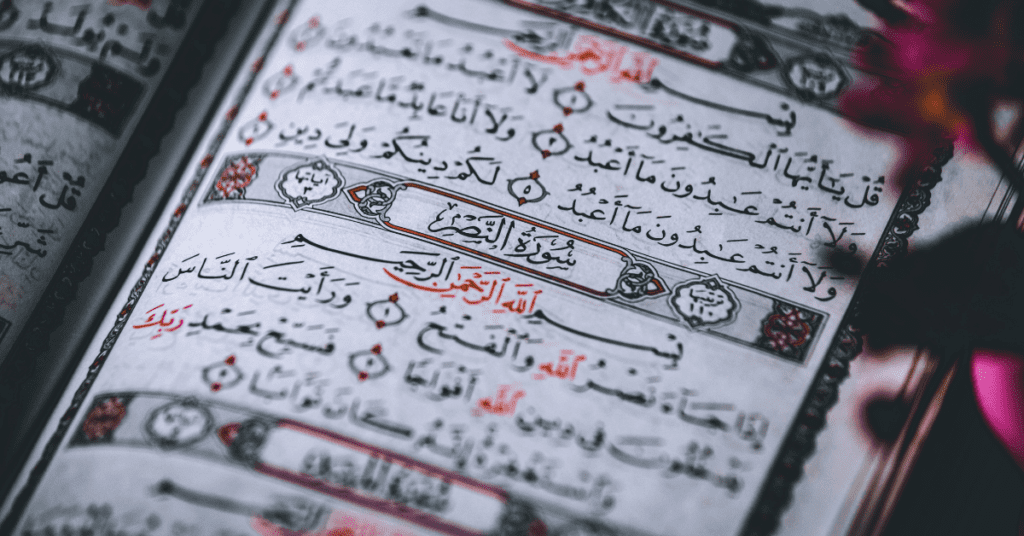 سُورَةُ الكَافِرُونَ
بِسْمِ ٱللَّهِ ٱلرَّحْمَٰنِ ٱلرَّحِيمِ
قُلْ يَٰٓأَيُّهَا ٱلْكَٰفِرُونَ ١ لَآ أَعْبُدُ مَا تَعْبُدُونَ ٢
وَلَآ أَنتُمْ عَٰبِدُونَ مَآ أَعْبُدُ ٣ وَلَآ أَنَا۠ عَابِدٌ مَّا عَبَدتُّمْ ٤
وَلَآ أَنتُمْ عَٰبِدُونَ مَآ أَعْبُدُ ٥ لَكُمْ دِينُكُمْ وَلِىَ دِينِ ٦
ترتيبها ١١٠ سُورَةُ النَّصْرِ آياتها ٣
بِسْمِ ٱللَّهِ ٱلرَّحْمَٰنِ ٱلرَّحِيمِ
إِذَا جَآءَ نَصْرُ ٱللَّهِ وَٱلْفَتْحُ ١ وَرَأَيْتَ ٱلنَّاسَ
يَدْخُلُونَ فِى دِينِ ٱللَّهِ أَفْوَاجًا ٢ فَسَبِّحْ بِحَمْدِ رَبِّكَ
وَٱسْتَغْفِرْهُ إِنَّهُۥ كَانَ تَوَّابًۢا ٣